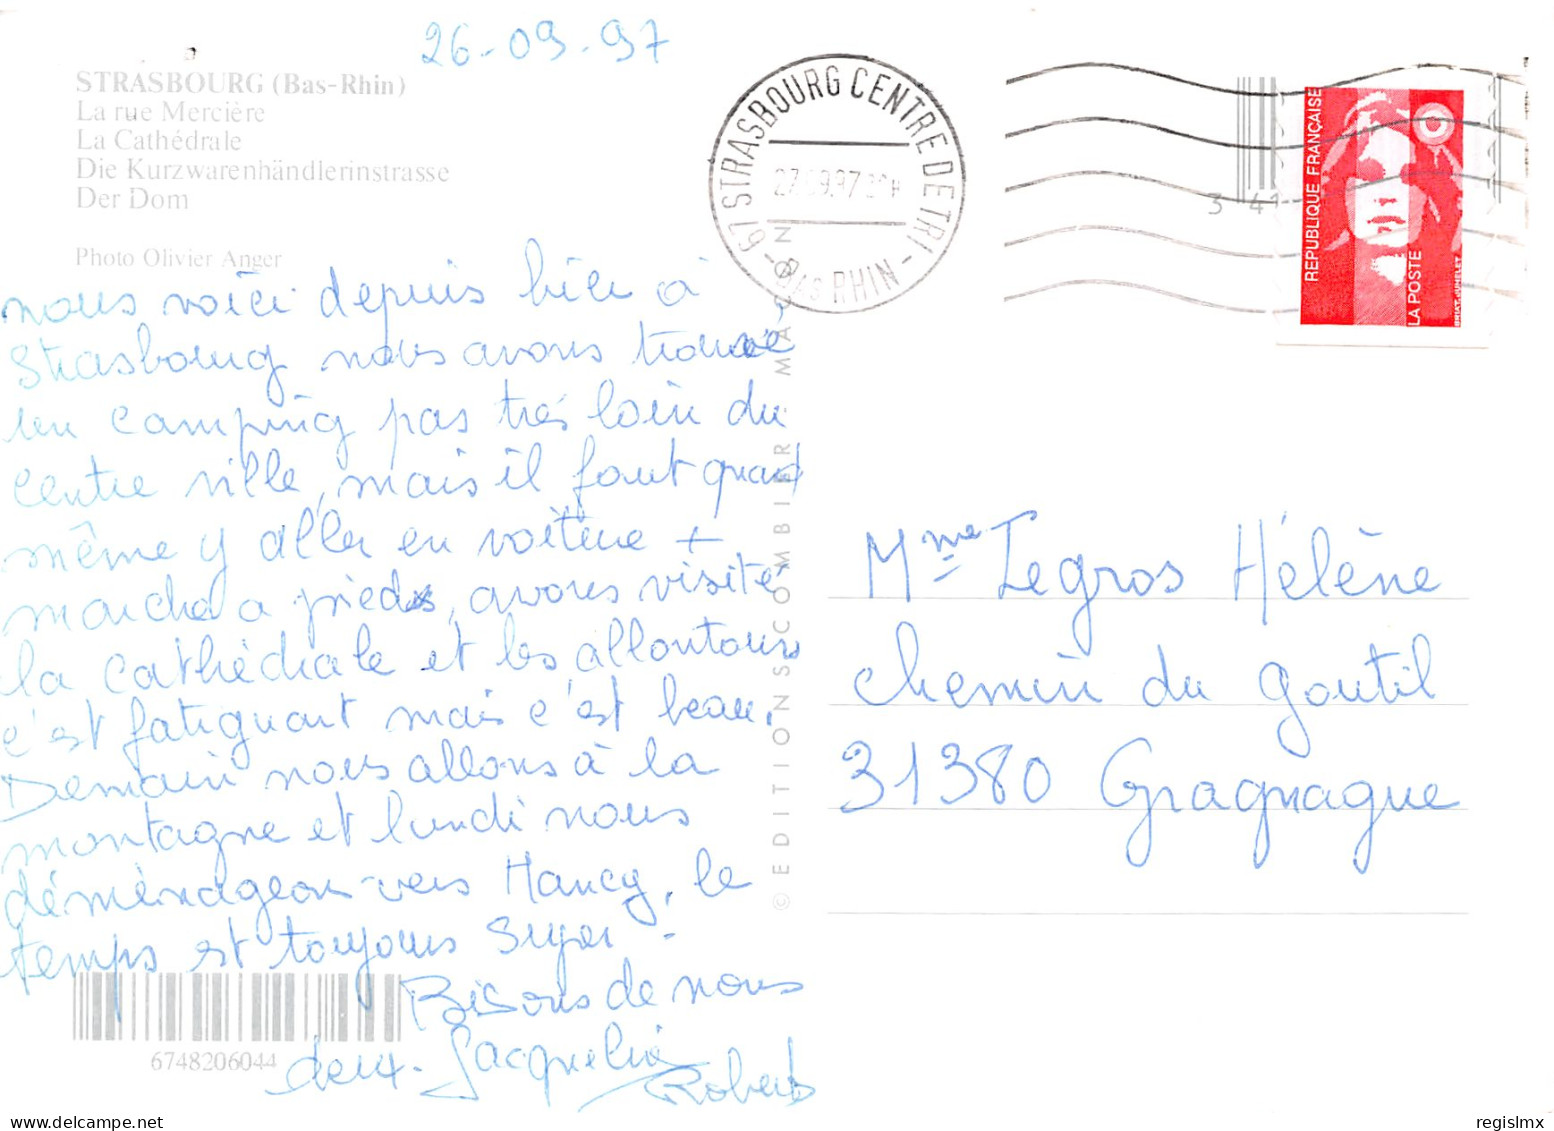 26-09-97
STRASBOURG (Bas-Rhin)
La rue Mercière
La Cathédrale
Die Kurzwarenhändlerinstrasse
Der Dom
Photo Olivier Anger
nous voici depuis hier à
Strasbourg nous avons trouvé
un camping pas très loin du
centre ville, mais il faut quand
même y aller en voiture +
marche a pieds, avons visité
la cathédrale et les allentours
c'est fatiguant mais c'est beau.
Demain nous allons à la
montagne et lundi nous
déménageons vers Nancy, le
temps est toujours super -
Bisous de nous
deux. Jacqueline
Robert
6748206044
© EDITIONS COMBIER MACON
67 STRASBOURG CENTRE DE TRI
27.09.97
BAS RHIN
3 41
REPUBLIQUE FRANÇAISE
LA POSTE
BRIAT-JUMELET
Mme Legros Hélène
chemin du goutil
31380 Gragnague
regislmx